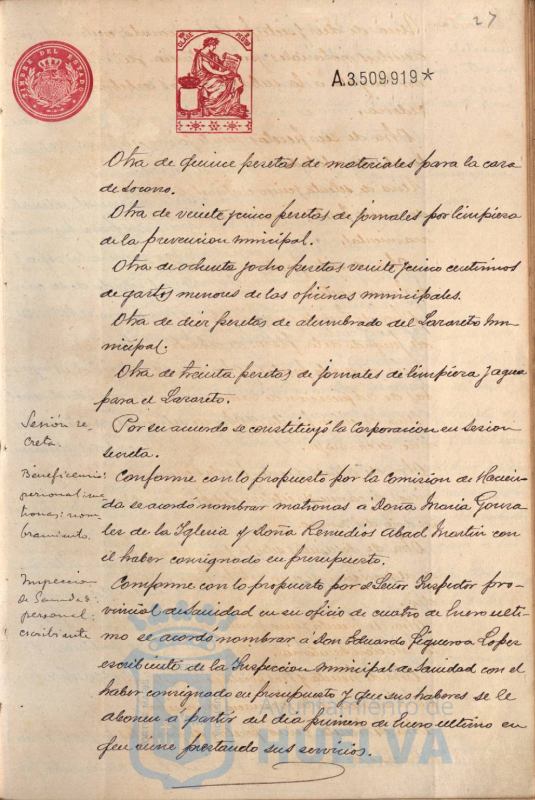 27
TIMBRE DEL ESTADO
CLASE
A.3.509.919*
Otra de quince pesetas de materiales para la casa
de socorro.
Otra de veinte y cinco pesetas de jornales por limpieza
de la prevencion municipal.
Otra de ochenta y ocho pesetas veinte y cinco centimos
de gastos menores de las oficinas municipales.
Otra de diez pesetas de alumbrado del Lazareto mu-
nicipal.
Otra de treinta pesetas de jornales de limpieza y agua
para el Lazareto.
Sesión se-
creta.
Por su acuerdo se constituyó la Corporacion en sesion
secreta.
Beneficencia:
personal: ma-
tronas: nom-
bramiento.
Conforme con lo propuesto por la Comisión de Hacien-
da se acordó nombrar matronas á Doña Maria Gonza-
lez de la Iglesia y Doña Remedios Abad Martin con
el haber consignado en presupuesto.
Inspeccion
de Sanidad:
personal:
escribiente
Conforme con lo propuesto por el Señor Inspector pro-
vincial de Sanidad en su oficio de cuatro de Enero ulti-
mo se acordó nombrar á Don Eduardo Figueroa Lopez
escribiente de la Inspeccion municipal de Sanidad con el
haber consignado en presupuesto y que sus haberes se le
abonen á partir del dia primero de Enero ultimo en
que viene prestando sus servicios.
Ayuntamiento de
HUELVA